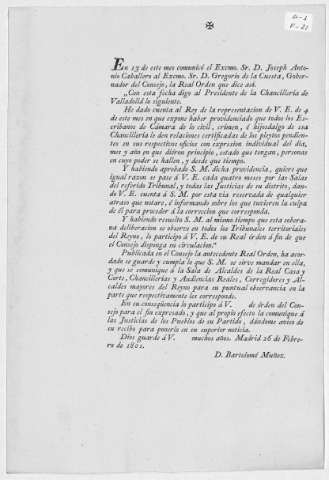 ✠
En 13 de este mes comunicó el Excmo. Sr. D. Joseph Anto-
nio Caballero al Excmo. Sr. D. Gregorio de la Cuesta, Gober-
nador del Consejo, la Real Orden que dice así.
„Con esta fecha digo al Presidente de la Chancillería de
Valladolid lo siguiente.
He dado cuenta al Rey de la representacion de V. E. de 4
de este mes en que expone haber providenciado que todos los Es-
cribanos de Cámara de lo civil, crimen, é hijosdalgo de esa
Chancillería le den relaciones certificadas de los pleytos pendien-
tes en sus respectivos oficios con expresion individual del dia,
mes y año en que diéron principio, estado que tengan, personas
en cuyo poder se hallen, y desde que tiempo.
Y habiendo aprobado S. M. dicha providencia, quiere que
igual razon se pase á V. E. cada quatro meses por las Salas
del referido Tribunal, y todas las Justicias de su distrito, dan-
do V. E. cuenta á S. M. por esta via reservada de qualquier
atraso que notare, é informando sobre los que tuvieren la culpa
de él para proceder á la correccion que corresponda.
Y habiendo resuelto S. M. al mismo tiempo que esta sobera-
na deliberacion se observe en todos los Tribunales territoriales
del Reyno, lo participo á V. E. de su Real órden á fin de que
el Consejo disponga su circulacion."
Publicada en el Consejo la antecedente Real Orden, ha acor-
dado se guarde y cumpla lo que S. M. se sirve mandar en ella,
y que se comunique á la Sala de Alcaldes de la Real Casa y
Corte, Chancillerías y Audiencias Reales, Corregidores y Al-
caldes mayores del Reyno para su puntual observancia en la
parte que respectivamente les corresponde.
En su conseqüencia lo participo á V. de órden del Con-
sejo para el fin expresado, y que al propio efecto la comunique á
las Justicias de los Pueblos de su Partido, dándome aviso de
su recibo para ponerlo en su superior noticia.
Dios guarde á V. muchos años. Madrid 26 de Febre-
ro de 1801.
D. Bartolomé Muñoz.